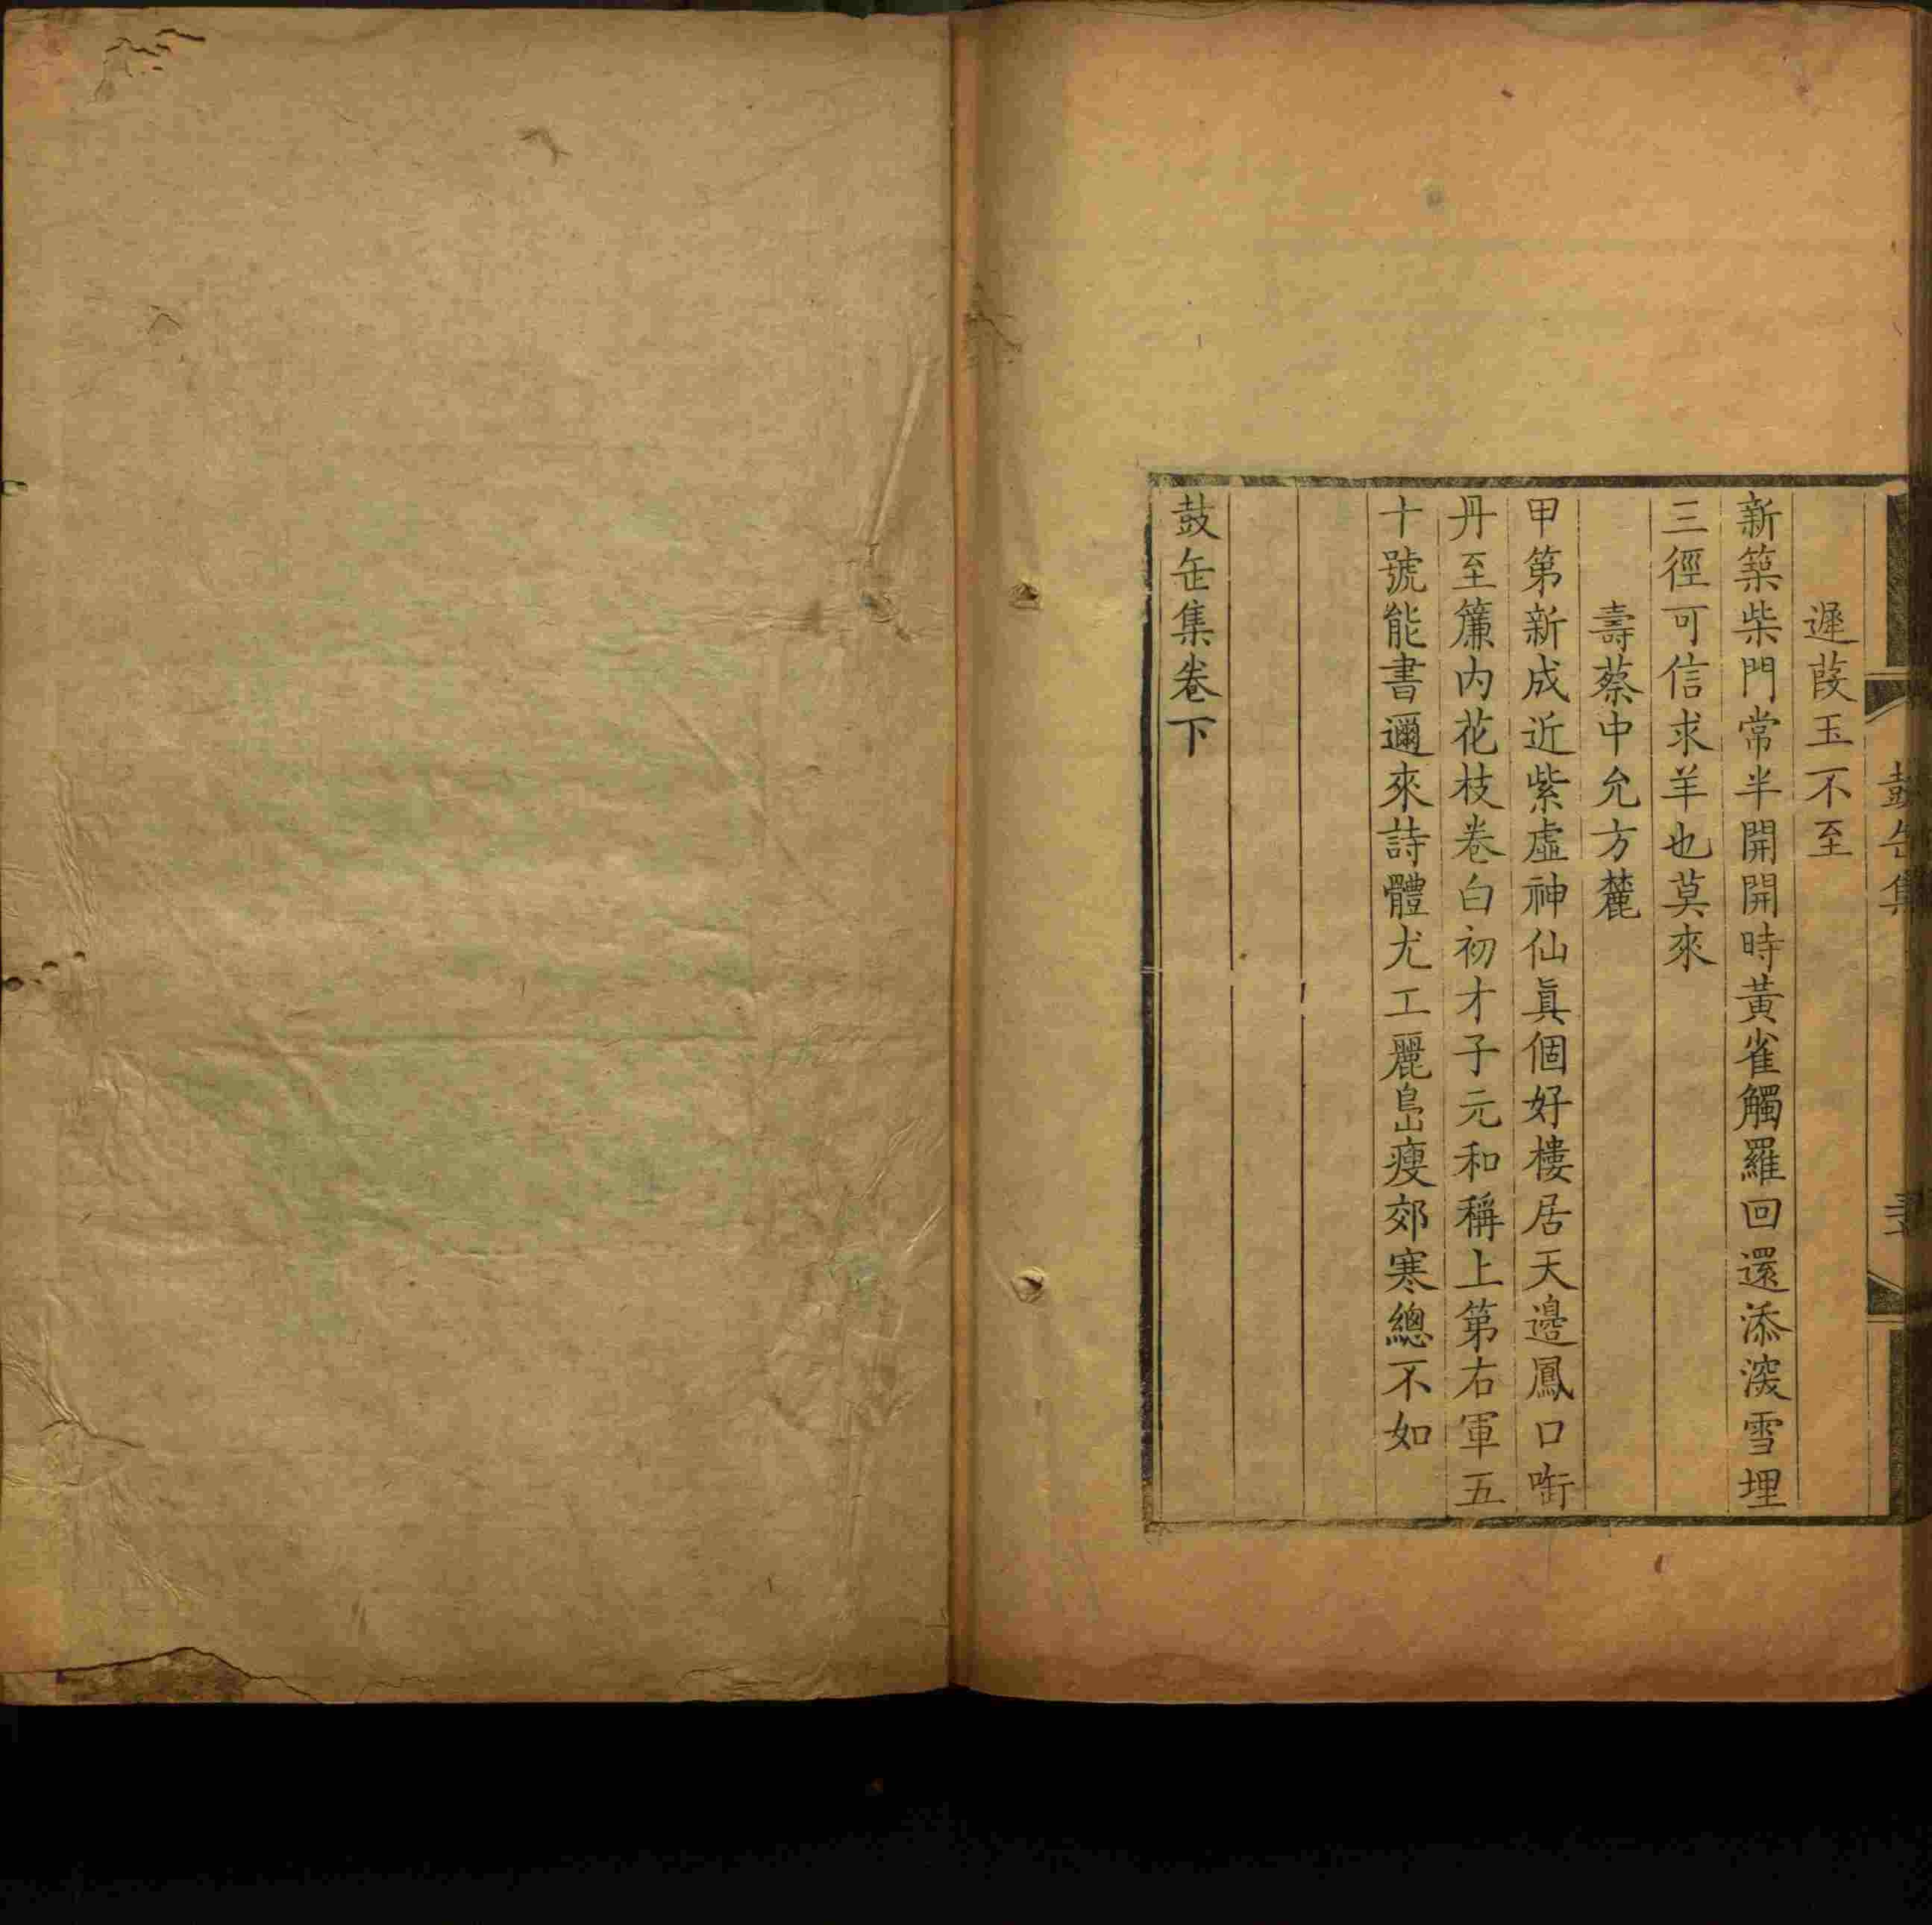 鼓缶集
遲葭玉不至
新築柴門常半開開時黃雀觸羅回還添深雪埋
三徑可信求羊也莫來
壽蔡中允方麓
甲第新成近紫虛神仙眞個好樓居天邊鳳口銜
丹至簾内花枝卷白初才子元和稱上第右軍五
十號能書邇來詩體尤工麗島瘦郊寒總不如
鼓缶集卷下